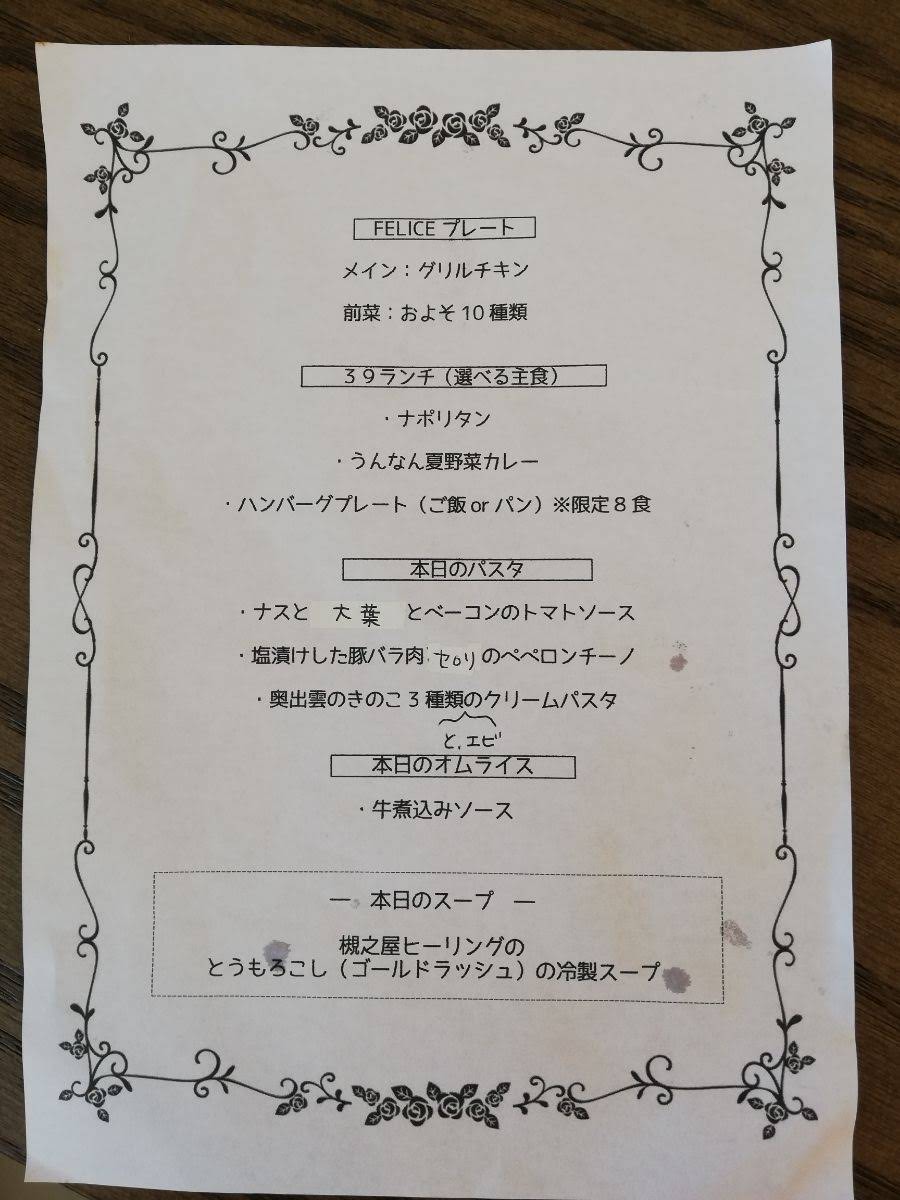 FELICE プレート
メイン：グリルチキン
前菜：およそ 10 種類
３９ランチ（選べる主食）
・ナポリタン
・うんなん夏野菜カレー
・ハンバーグプレート（ご飯 or パン）※限定８食
本日のパスタ
・ナスと 大葉 とベーコンのトマトソース
・塩漬けした豚バラ肉 セロリ のペペロンチーノ
・奥出雲のきのこ 3 種類のクリームパスタ
と、エビ
本日のオムライス
・牛煮込みソース
― 本日のスープ ―
槻之屋ヒーリングの
とうもろこし（ゴールドラッシュ）の冷製スープ